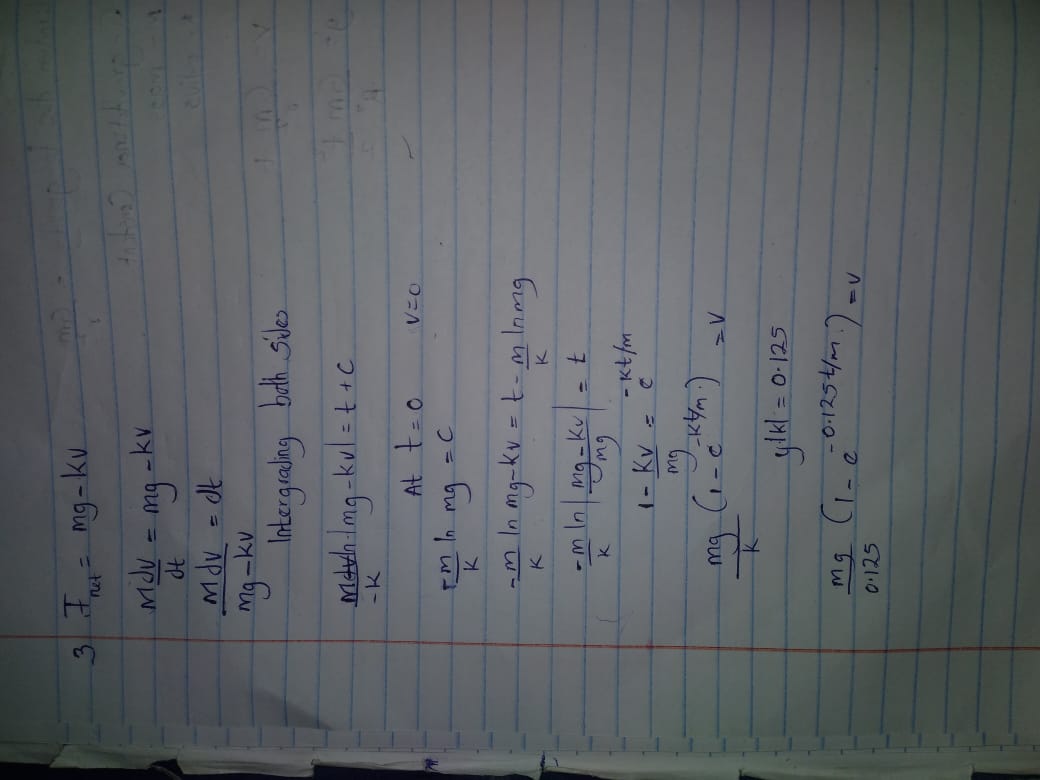 3 Fnet = mg - kv
Mdv/dt = mg - kv
Mdv/mg-kv = dt
Intergrading both Sides
m/-k ln |mg - kv| = t + C
At t = 0 v = 0
-m/k ln mg = C
-m/k ln mg - kv = t - m/k ln mg
-m/k ln |mg - kv/mg| = t
1 - kv/mg = e^-kt/m
mg/k (1 - e^-kt/m.) = v
y |k| = 0.125
mg/0.125 (1 - e^-0.125t/m.) = v